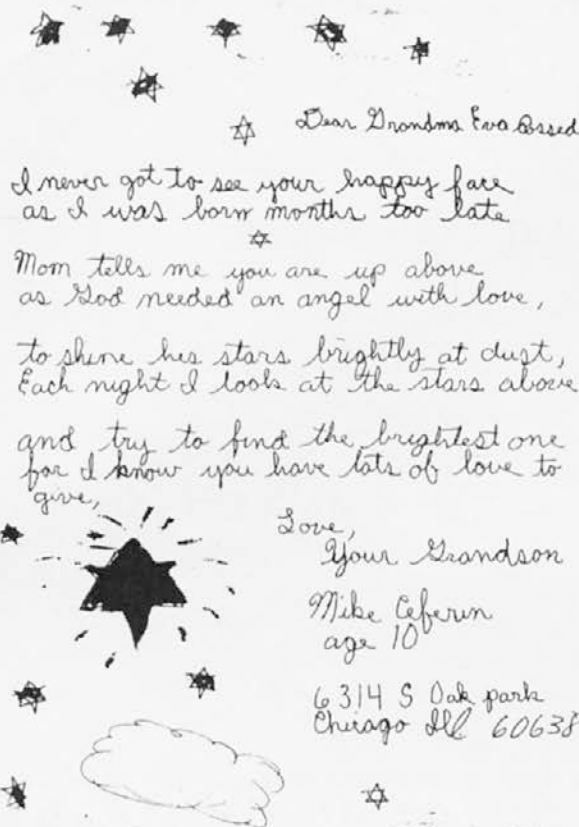 Dear Grandma Eva
I never got to see your happy face
as I was born months too late
Mom tells me you are up above
as God needed an angel with love,
to shine his stars brightly at dust,
Each night I look at the stars above
and try to find the brightest one
for I know you have lots of love to
give,
Love,
Your Grandson
Mike
age 10
6314 S Oak park
Chicago Ill 60638